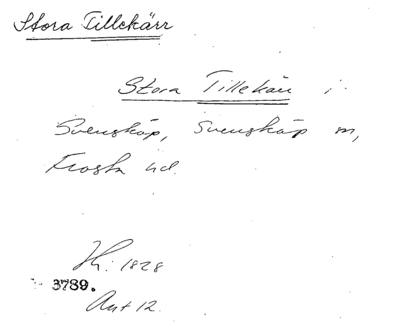 Stora Tillekärr
Stora Tillekärr i
Svensköp, Svensköp sn,
Frosta hd.
Hr: 1828
3789.
Ant 12.